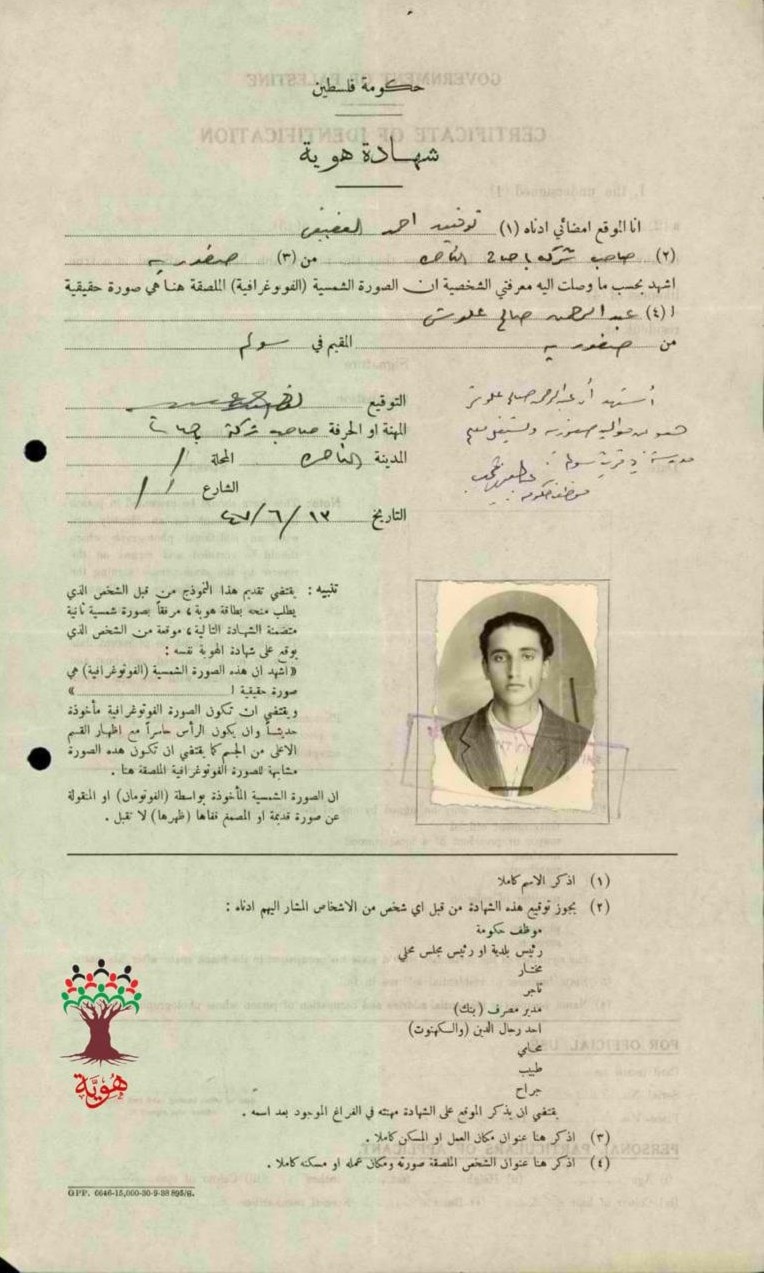 حكومة فلسطين
شهادة هوية
انا الموقع امضائي ادناه (١) توفيق احمد
(٢) صاحب شركة باصات الناصرة من (٣) صفوريه
اشهد بحسب ما وصلت اليه معرفتي الشخصية ان الصورة الشمسية (الفوتوغرافية) الملصقة هنا هي صورة حقيقية
ا (٤) عبد الرحمن صالح علوش
من صفوريه المقيم في سولم
التوقيع
المهنة او الحرفة صاحب شركة باصات
المدينة الناصرة المحلة /
الشارع /
التاريخ ١٣ / ٦ / ٤٧
أشهد أن عبد الرحمن صالح علوش
هو من مواليد صفوريه ويشتغل معلم
مدرسة في قرية سولم
موظف حكومة
تنبيه : يقتضي تقديم هذا النموذج من قبل الشخص الذي
يطلب منحه بطاقة هوية، مرفقاً بصورة شمسية ثانية
متضمنة الشهادة التالية، موقعة من الشخص الذي
يوقع على شهادة الهوية نفسه :
«اشهد ان هذه الصورة الشمسية (الفوتوغرافية) هي
صورة حقيقية ا »
ويقتضي ان تكون الصورة الفوتوغرافية مأخوذة
حديثاً وان يكون الرأس حاسراً مع اظهار القسم
الاعلى من الجسم كما يقتضي ان تكون هذه الصورة
مشابهة للصورة الفوتوغرافية الملصقة هنا .
ان الصورة الشمسية المأخوذة بواسطة (الفوتومان) او المنقولة
عن صورة قديمة او المصمغ قفاها (ظهرها) لا تقبل .
(١) اذكر الاسم كاملا
(٢) يجوز توقيع هذه الشهادة من قبل اي شخص من الاشخاص المشار اليهم ادناه :
موظف حكومة
رئيس بلدية او رئيس مجلس محلي
مختار
تاجر
مدير مصرف (بنك)
احد رجال الدين (والسكهنوت)
محامي
طبيب
جراح
يقتضي ان يذكر الموقع على الشهادة مهنته في الفراغ الموجود بعد اسمه .
(٣) اذكر هنا عنوان مكان العمل او المسكن كاملا .
(٤) اذكر هنا عنوان الشخص الملصقة صورته ومكان عمله او مسكنه كاملا .
هُوِيَّة
GPP. 6646-15,000-30-9-38 895/g.